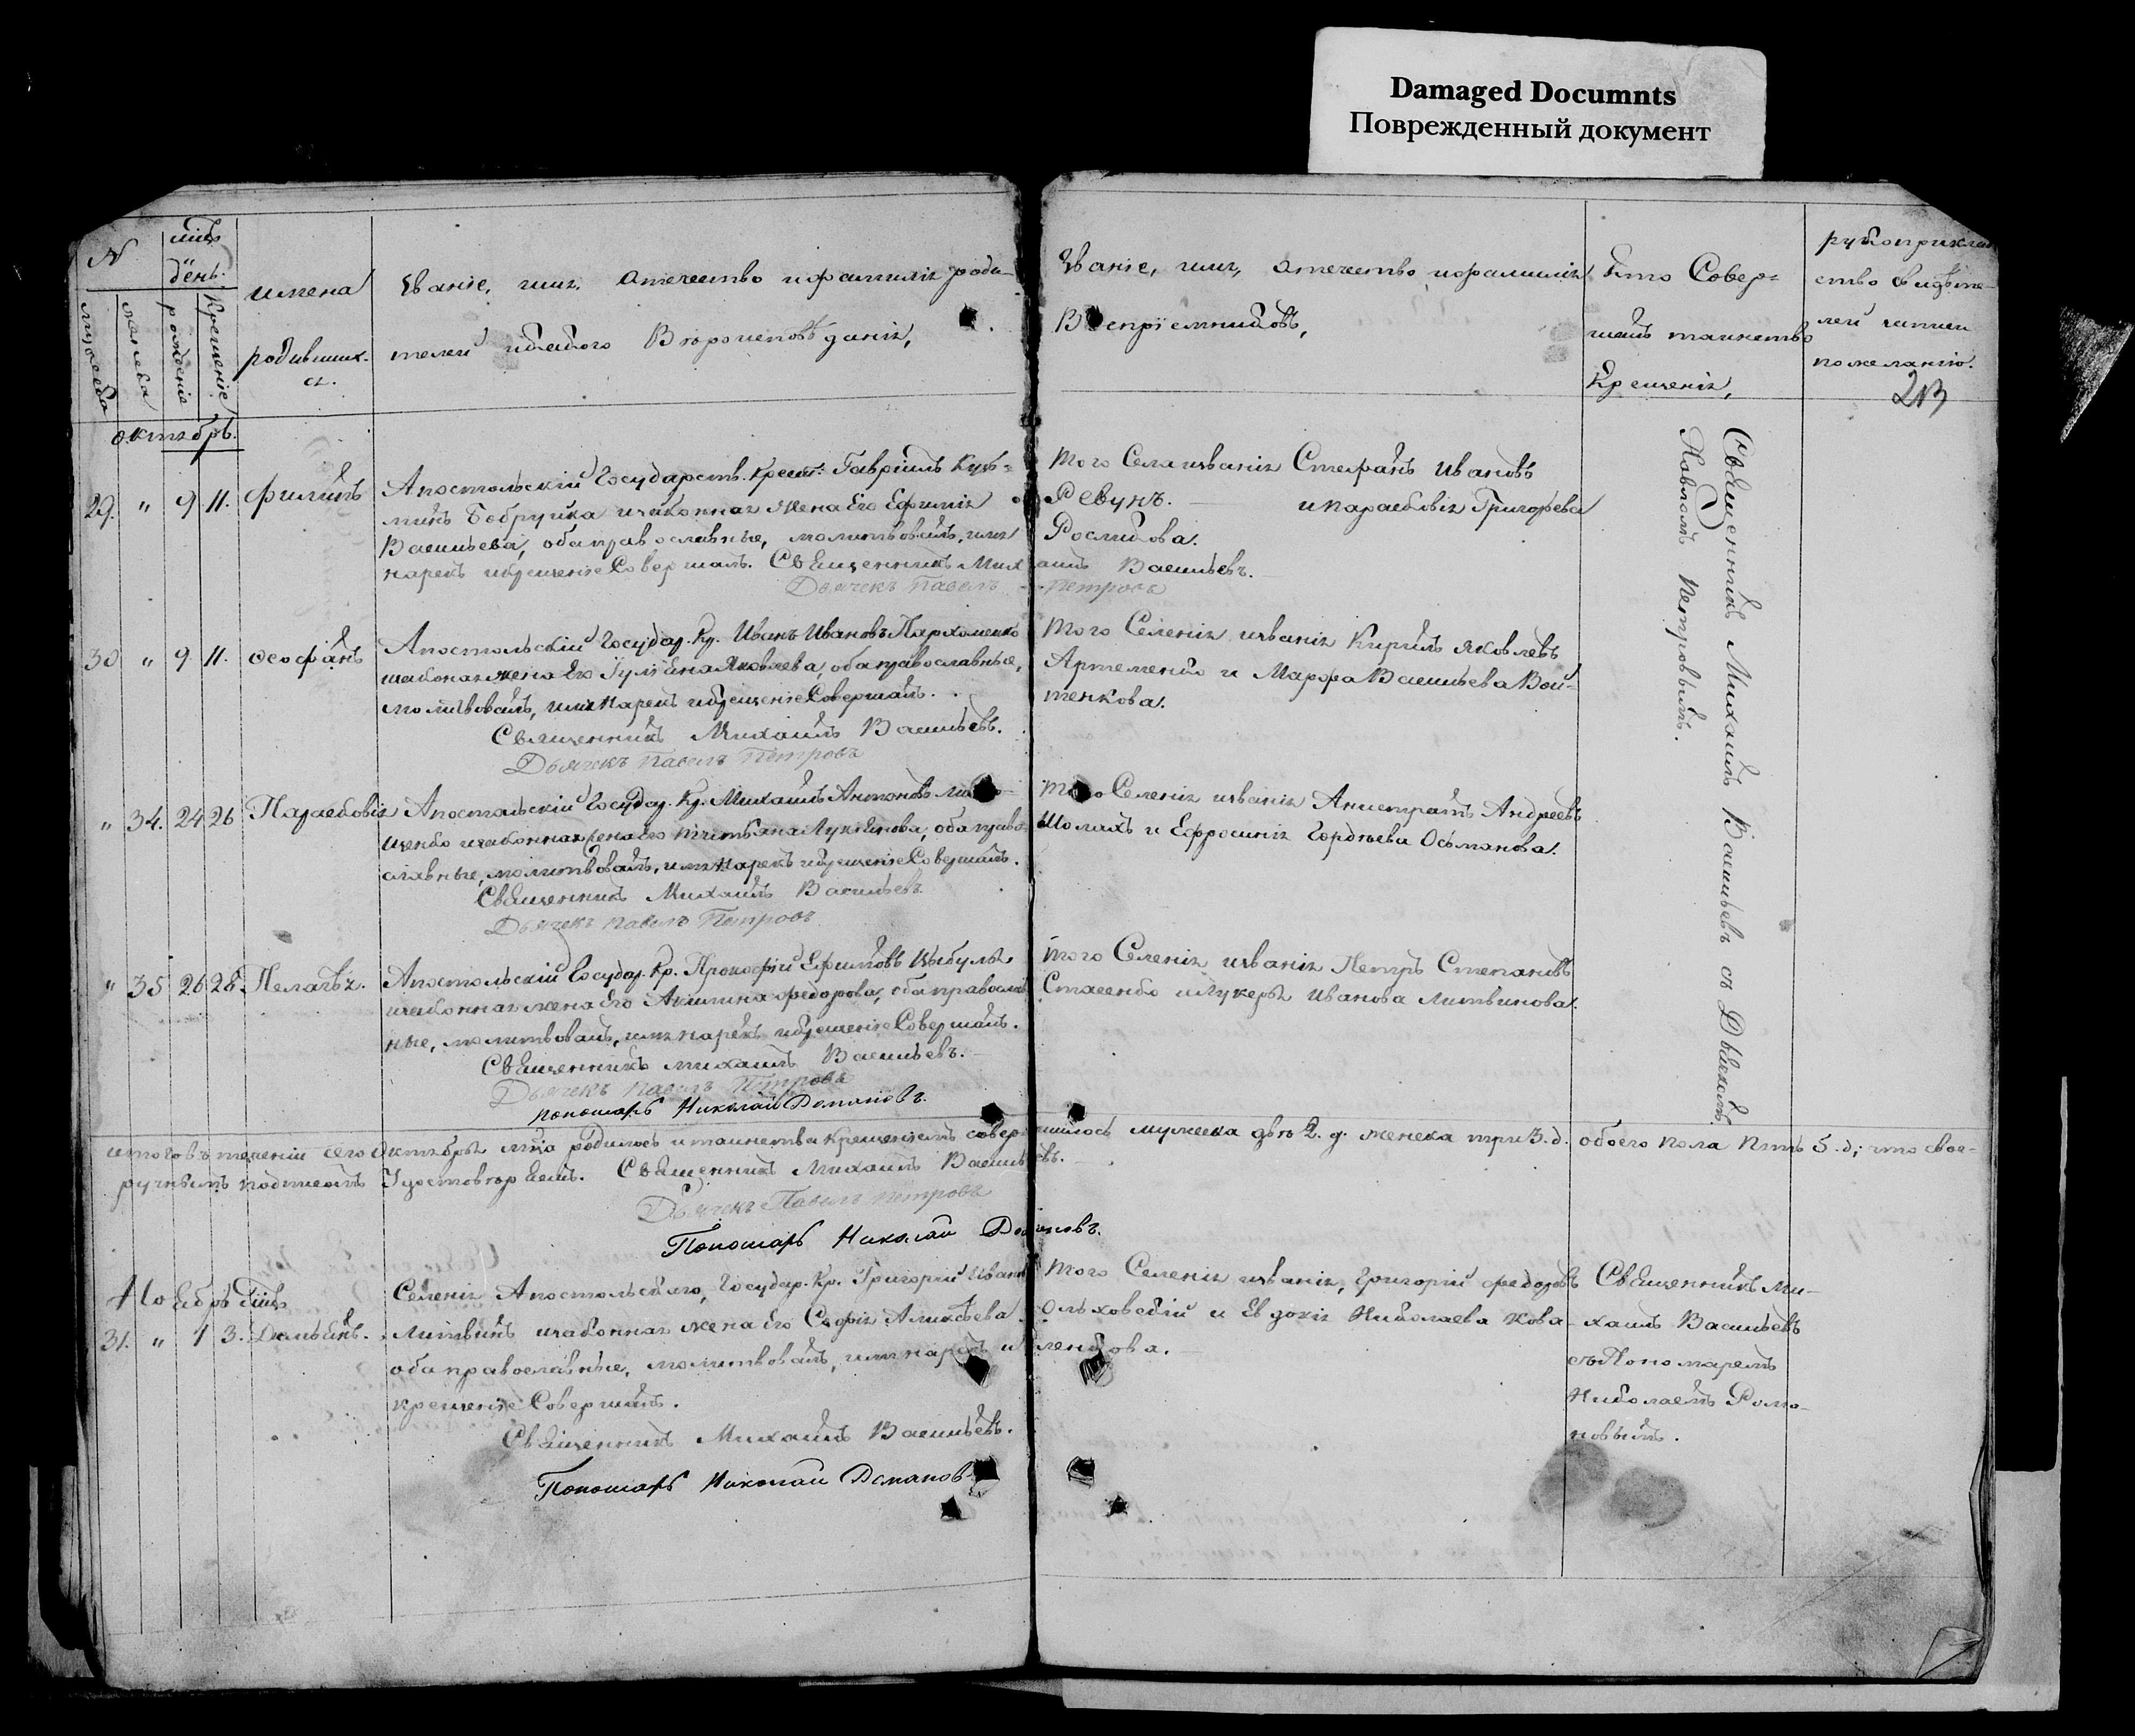 Damaged Documnts
Поврежденный документ
N
мѣс.
день.
мужеска
женска
рожденіе
крещеніе
имена
родивших-
ся.
Званіе, имя, отечество и фамилія роди-
телей и какого вѣроисповѣданія,
Званіе, имя, отечество и фамилія
Воспріемниковъ,
Кто Совер-
шалъ таинство
Крещенія,
рукоприклад
ство свидѣте-
лей записи
по желанію.
213
октябрь.
29. " 9 11. Филипъ
Апостольскій Государств. крест. Гавріилъ Кузь-
минъ Бобруйка и законная жена Его Ефимія
Васильева, оба православные, молитвовалъ, имя
нарекъ и крещеніе Совершалъ. Священникъ Михаилъ Васильевъ.
Дьячекъ Павелъ Петровъ
того Села и званія Стефанъ Ивановъ
Ревунъ. и парасковія Григорьева
Рослякова.
30 " 9 11. Феофанъ
Апостольскій Государ. Кр. Иванъ Ивановъ Пархоменко
и законая жена Его Іуліена Яковлева, оба православные,
молитвовалъ, имя нарекъ и крещеніе Совершалъ.
Священникъ Михаилъ Васильевъ.
Дьячекъ Павелъ Петровъ
того Селенія и званія Кирилъ Яковлевъ
Артеменко и Марфа Васильева Вой-
тенкова.
" 34. 24 26 Парасковія
Апостольскій Государ. Кр. Михаилъ Антоновъ
и законная жена Его Лукьянова, оба право
славные, молитвовалъ, имя нарекъ и крещеніе Совершалъ.
Священникъ Михаилъ Васильевъ
Дьячекъ Павелъ Петровъ
того Селенія и званія Анистратъ Андреевъ
Шолахъ и Ефросинія Гордѣева Осьманова.
" 35 26 28 Пелагѣя.
Апостольскій Государ. Кр. Прокофій Ефимовъ Цыбуля
и законная жена Его Акилина Федорова, оба православ
ные, молитвовалъ, имя нарекъ и крещеніе Совершалъ.
Священникъ Михаилъ Васильевъ.
Дьячекъ Павелъ Петровъ
Пономарь Николай Романовъ.
того Селенія и званія Петръ Степановъ
Стасенко и Лукерья Иванова Литвинова.
Священникъ Михаилъ Васильевъ съ Дьякомъ
Павломъ Петровымъ.
итого въ теченіи сего октября мѣца родилось и таинства крещенія совершилось мужеска двѣ 2. д. женска три 3. д. обоего пола пять 5. д; что свое-
ручнымъ подписомъ Удостовѣряемъ. Священникъ Михаилъ Васильевъ.
Дьячекъ Павелъ Петровъ
Пономарь Николай Романовъ.
Ноябрь мѣць
31. " 1 3. Демьянъ.
Селенія Апостольского, Государ. Кр. Григорій Иванов
Литвинъ и законная жена Его Софія Аликсѣева
оба православные, молитвовалъ, имя нарекъ и
крещеніе Совершалъ.
Священникъ Михаилъ Васильевъ.
Пономарь Николай Романовъ
того Селенія и званія, Григорій Федоровъ
Ольховскій и Евдокія Николаева Кова-
ленкова.
Священникъ Ми-
хаилъ Васильевъ
съ Пономаремъ
Николаемъ Рома-
новымъ.